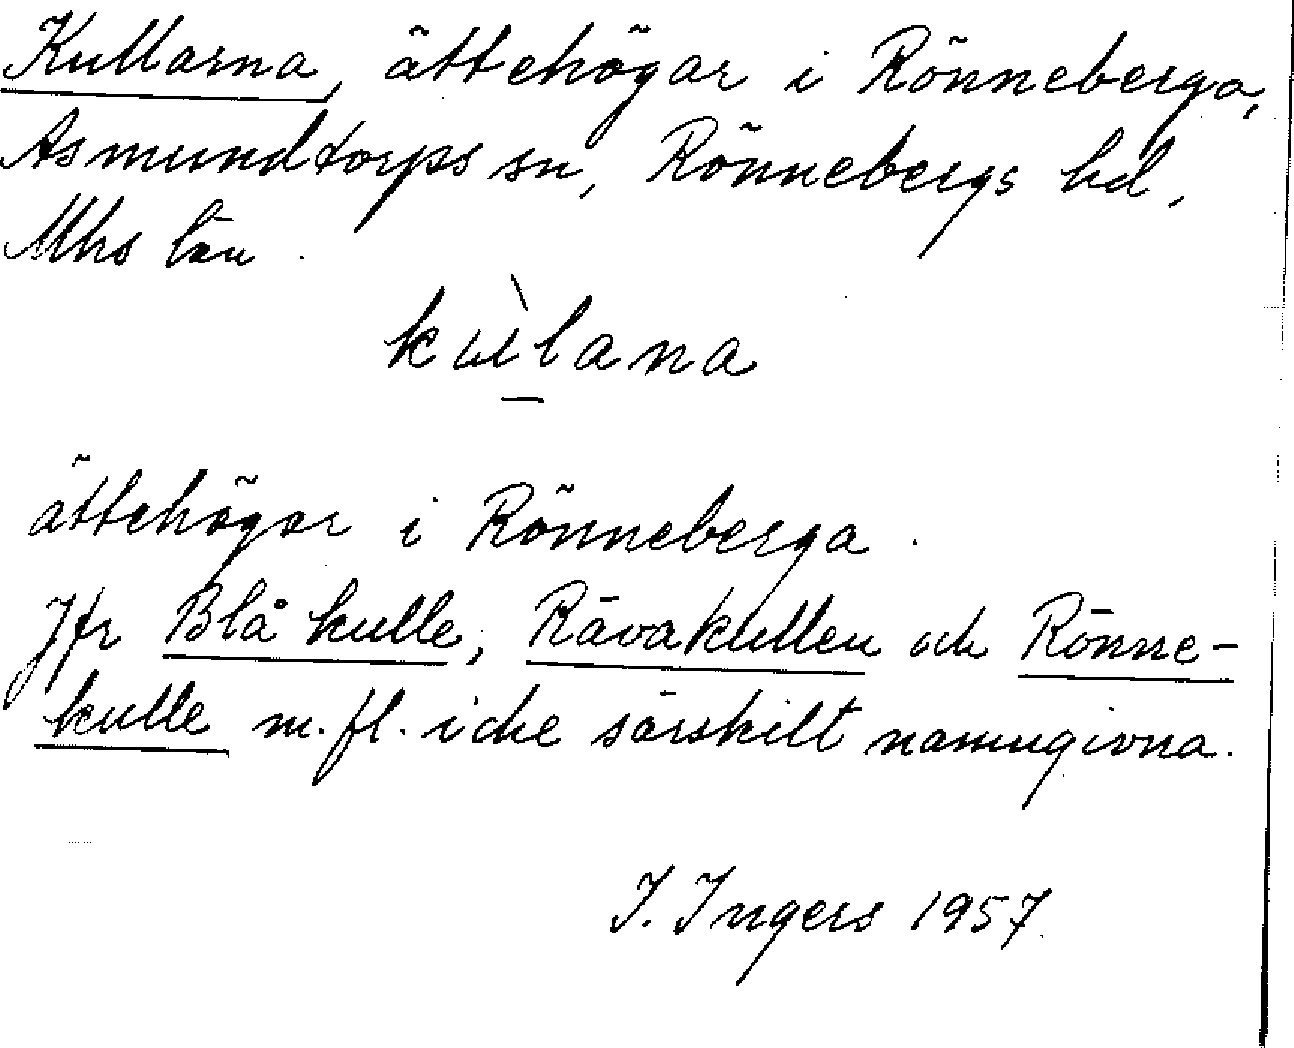 Kullarna, ättehögar i Rönneberga,
Asmundtorps sn, Rönnebergs hd,
Mhs län.
kùlana
ättehögar i Rönneberga.
Jfr Blå kulle, Rävakullen och Rönne-
kulle m. fl. icke särskilt namngivna.
I. Ingers 1957